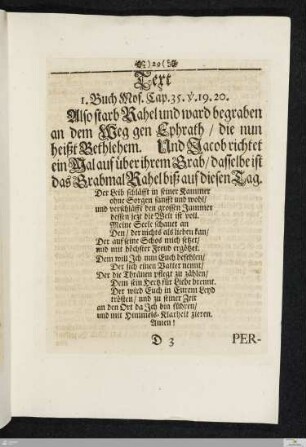 )29(
Text
1. Buch Mos. Cap. 35. v. 19. 20.
Also starb Rahel und ward begraben
an dem Weg gen Ephrath / die nun
heißt Bethlehem. Und Jacob richtet
ein Mal auf über ihrem Grab / dasselbe ist
das Grabmal Rahel biß auf diesen Tag.
Der Leib schläfft in seiner Kammer
ohne Sorgen sanfft und wohl /
und verschläfft den grossen Jammer
dessen jetz die Welt ist voll.
Meine Seele schauet an
Den / der nichts als lieben kan /
Der auf seine Schos mich setzet /
und mit höchster Freud ergötzet.
Dem will Ich nun Euch befehlen /
Der sich eines Vatter nennt /
Der die Thränen pflegt zu zählen /
Dem sein Hertz für Liebe brennt.
Der wird Euch in Eurem Leyd
trösten / und zu seiner Zeit
an den Ort da Ich bin führen /
und mit Himmels-Klarheit zieren.
Amen!
D 3
PER-